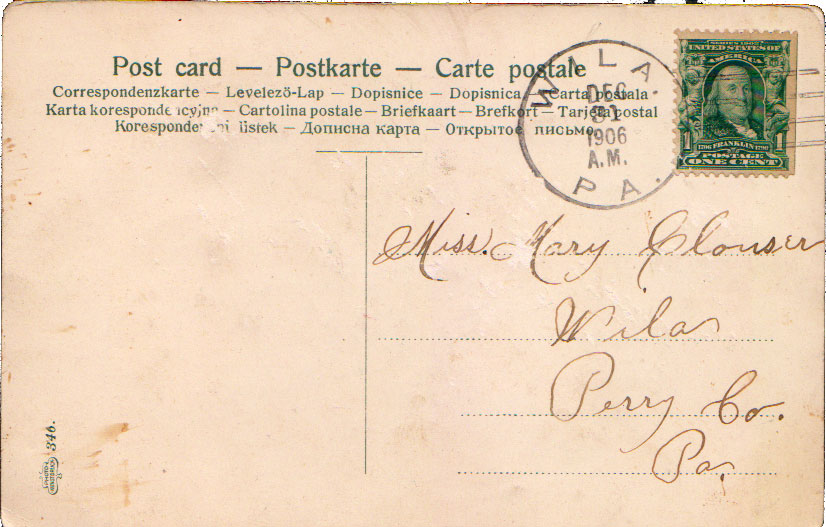 Post card — Postkarte — Carte postale
Correspondenzkarte — Levelezö-Lap — Dopisnice — Dopisnica — Carta postala
Karta korespondencyjna — Cartolina postale — Briefkaart — Brefkort — Tarjeta postal
Korespondenční lístek — Дописна карта — Открытое письмо
WILA.
DEC
31
1906
A.M.
PA.
SERIES 1902
UNITED STATES OF
AMERICA
1706 FRANKLIN 1790
1 POSTAGE 1
ONE CENT
Miss. Mary Clouser
Wila
Perry Co.
Pa.
346.